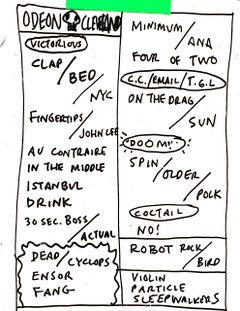 ODEON CLEVELAND
VICTORIOUS
CLAP/
BED/
NYC
FINGERTIPS/
JOHN LEE
AU CONTRAIRE
IN THE MIDDLE
ISTANBUL
DRINK
30 SEC. BOSS/
ACTUAL
DEAD/CYCLOPS
ENSOR
FANG
MINIMUM/
ANA
FOUR OF TWO
C.C./EMAIL/T.G.L
ON THE DRAG/
SUN
DOOM!
SPIN/
OLDER/
POLK
COCTAIL
NO!
ROBOT ROCK/
BIRD
VIOLIN
PARTICLE
SLEEPWALKERS